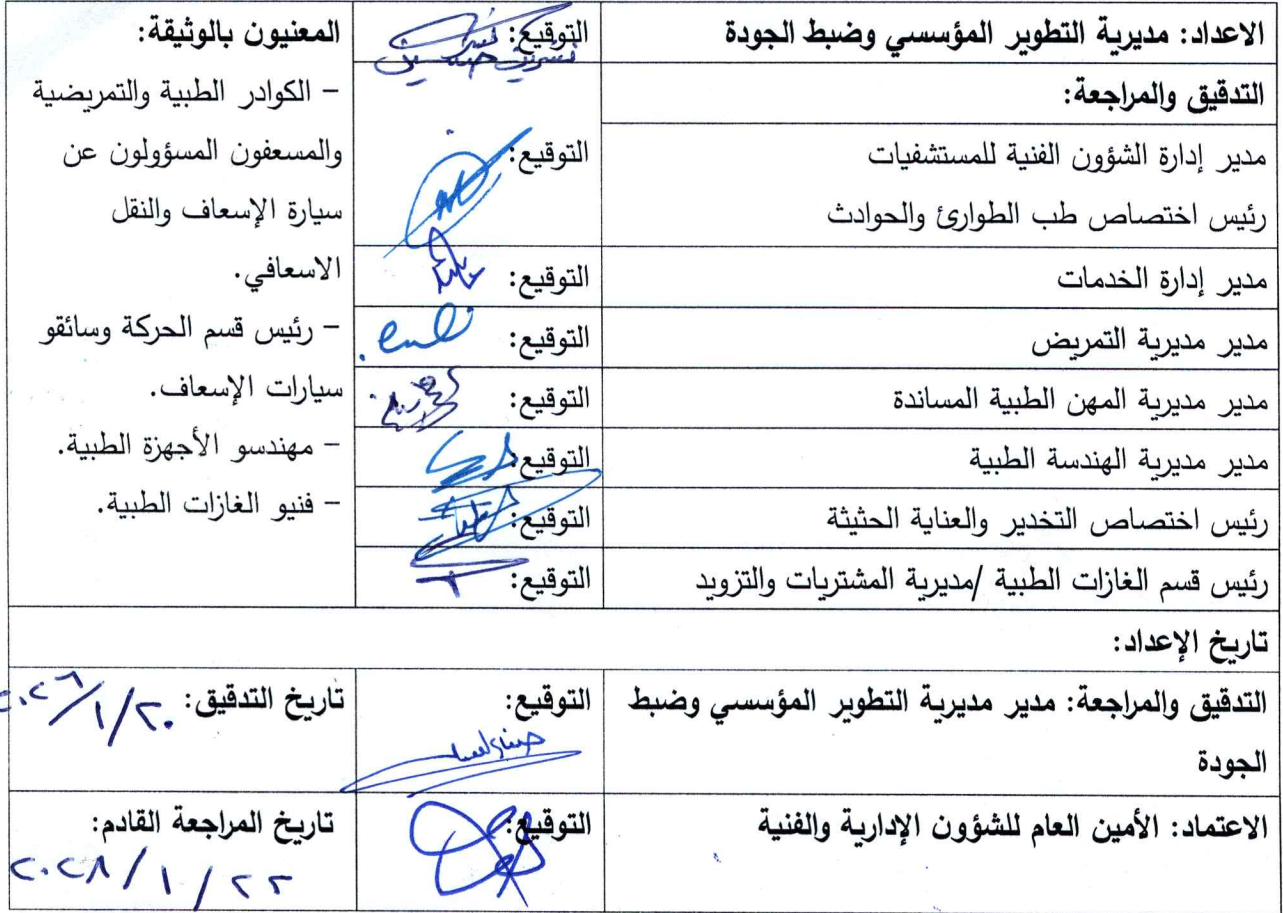 الاعداد: مديرية التطوير المؤسسي وضبط الجودة
التوقيع:
المعنيون بالوثيقة:
– الكوادر الطبية والتمريضية
والمسعفون المسؤولون عن
سيارة الإسعاف والنقل
الاسعافي.
– رئيس قسم الحركة وسائقو
سيارات الإسعاف.
– مهندسو الأجهزة الطبية.
– فنيو الغازات الطبية.
التدقيق والمراجعة:
مدير إدارة الشؤون الفنية للمستشفيات
التوقيع:
رئيس اختصاص طب الطوارئ والحوادث
مدير إدارة الخدمات
التوقيع:
مدير مديرية التمريض
التوقيع:
مدير مديرية المهن الطبية المساندة
التوقيع:
مدير مديرية الهندسة الطبية
التوقيع:
رئيس اختصاص التخدير والعناية الحثيثة
التوقيع:
رئيس قسم الغازات الطبية /مديرية المشتريات والتزويد
التوقيع:
تاريخ الإعداد:
التدقيق والمراجعة: مدير مديرية التطوير المؤسسي وضبط
الجودة
التوقيع:
تاريخ التدقيق: ٢٠/١/٢٠٢٦
الاعتماد: الأمين العام للشؤون الإدارية والفنية
التوقيع:
تاريخ المراجعة القادم:
٢٢/١/٢٠٢٨